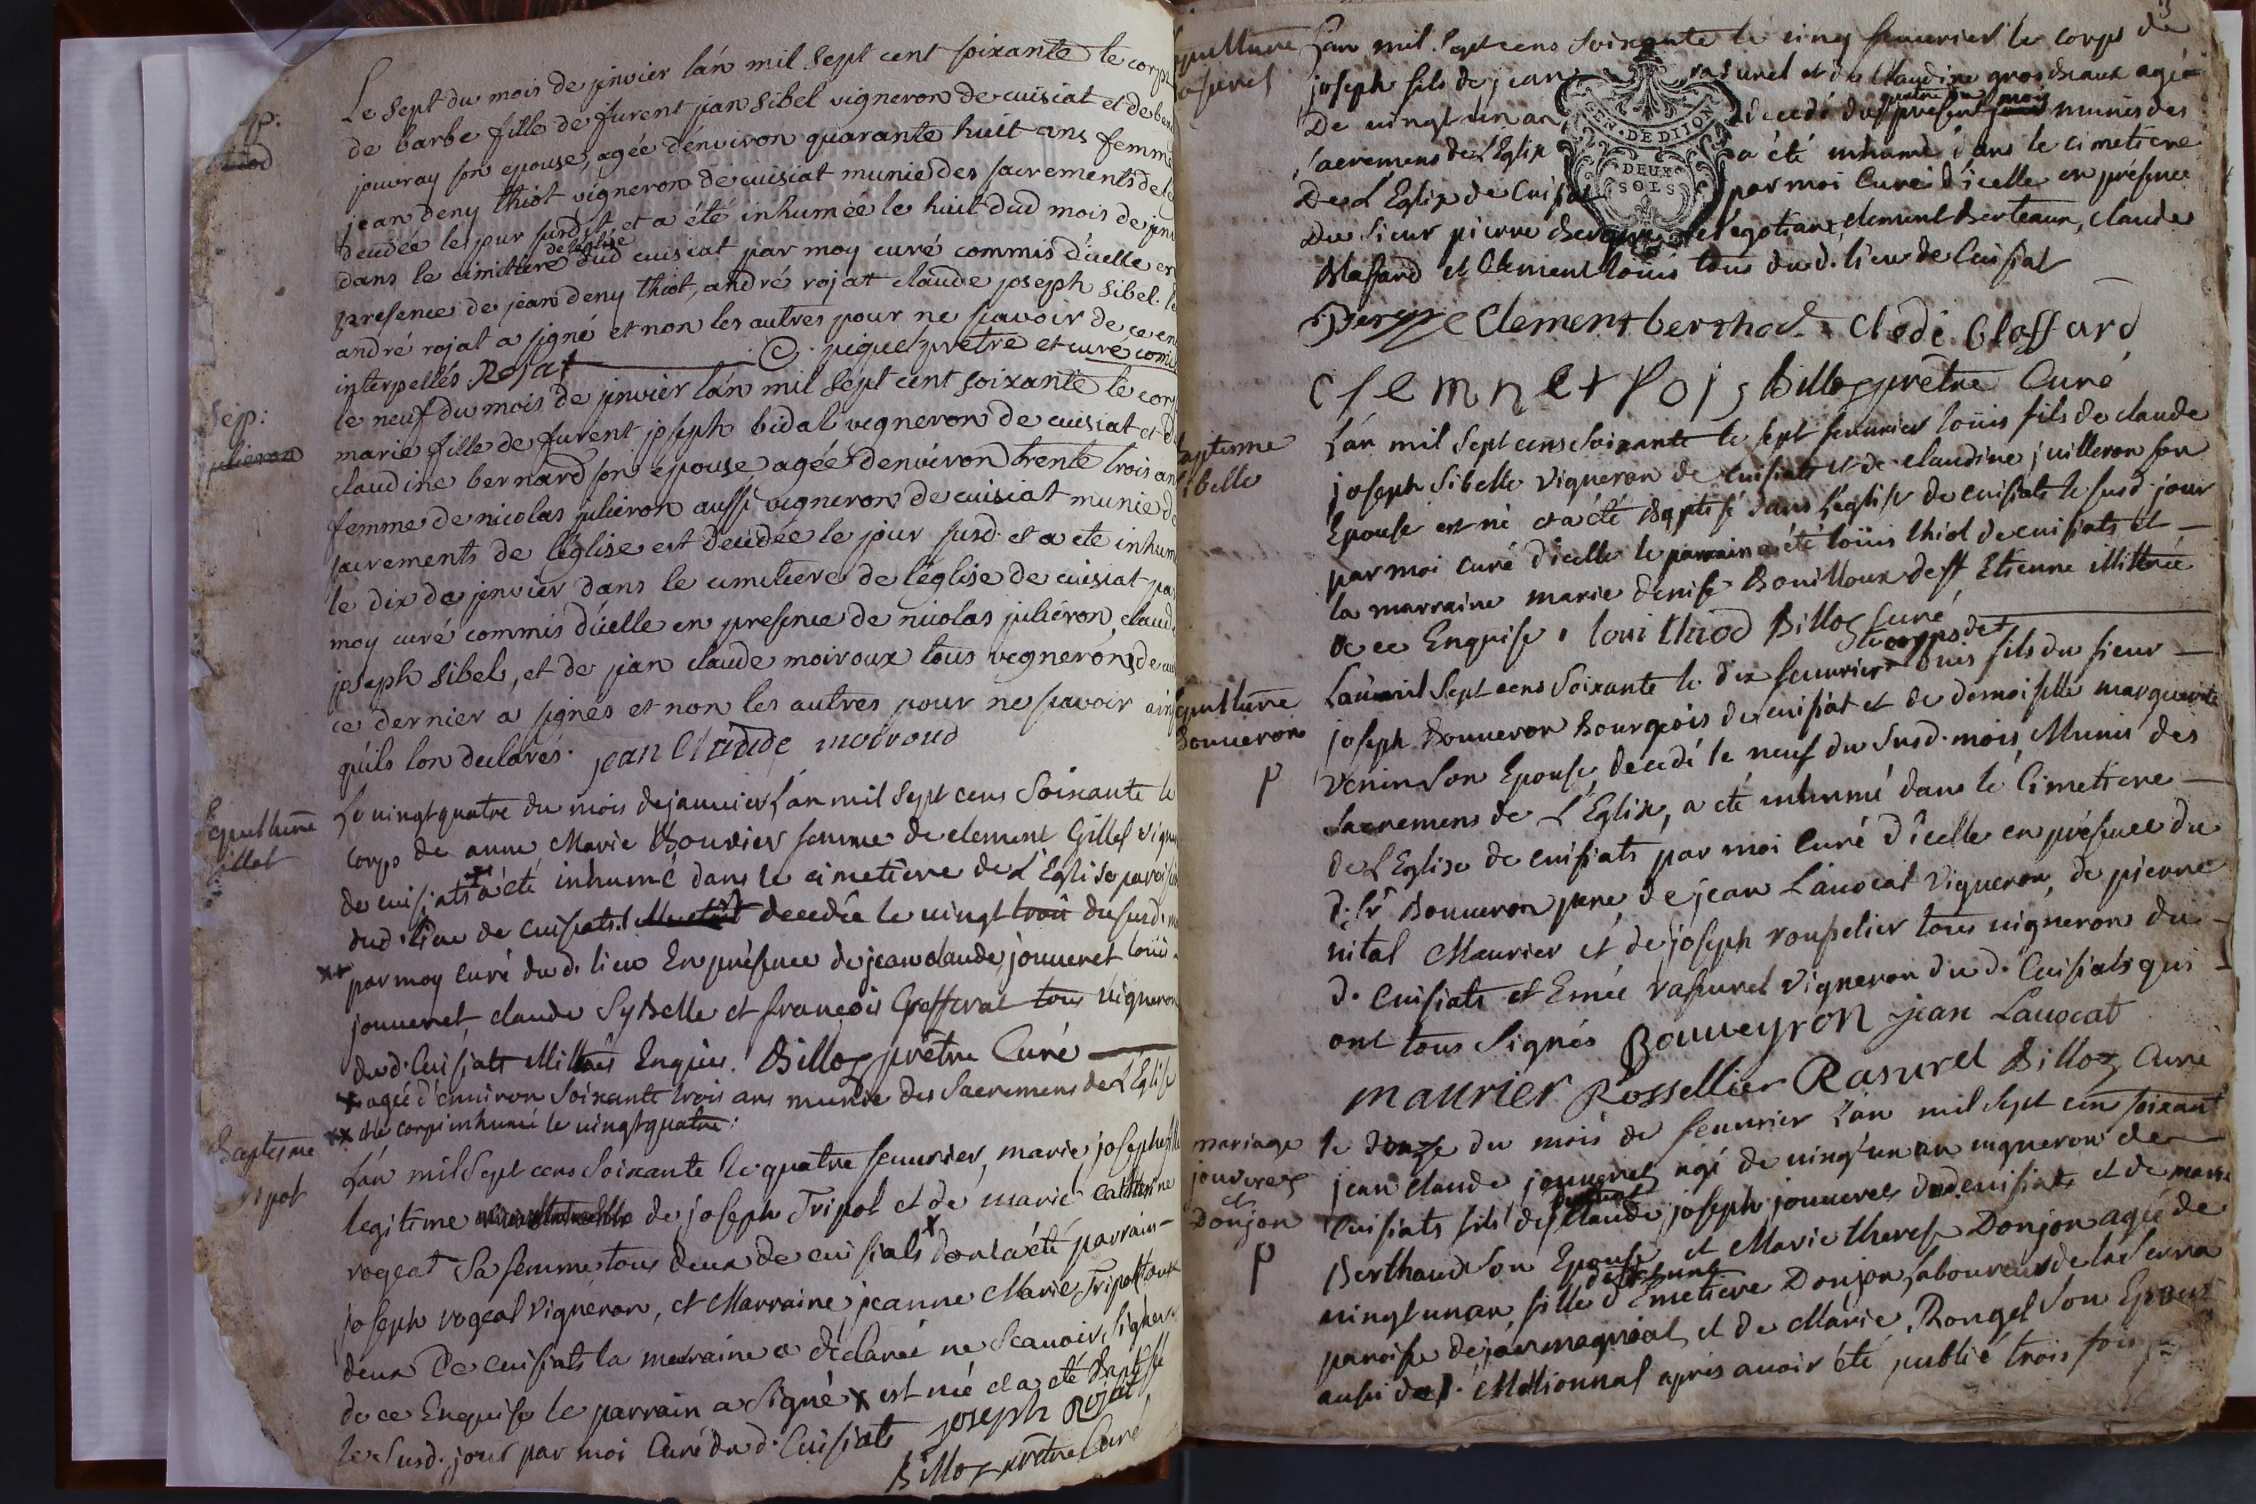 Le sept du mois de jenvier lán mil sept cent soixante le corps
de barbe fille de furent jean sibel vigneron de cuisiat et de
jouvray son epouse, agée d'énviron quarante huit ans femme
jean deny thiot vigneron de cuisiat munie des sacrements de
decedée le jour susdit et a été inhumée le huit dud mois de jenv
dans le cimitiere de léglise dud cuisiat par moy curé commis d'icelle en
presence de jean deny thiot, andré rojat claude joseph sibel.
andré rojat a signé et non les autres pour ne scavoir de ce en
interpellés Rojat piquet prêtre et curé comis
Sep:
julieron
le neuf du mois de jenvier lán mil sept cent soixante le corp
marie fille de furent joseph bidal vigneron de cuisiat et d
claudine bernard son épouse, agée denviron trente trois an
femme de nicolas julieron aussi vigneron de cuisiat munie d
sacrements de léglise est decedée le jour susd. et a eté inhum
le dix de jenvier dans le cimitiere de l'église de cuisiat pa
moy curé commis d'icelle en presence de nicolas juliéron, claud
joseph sibel, et de jean claude moiroux tous vignerons de
ce dernier a signés et non les autres pour ne scavoir ains
quils lon declarés. jean Claude moiroud
Sepulture
Gillet
Le vingt quatre du mois de janvier lán mil sept cens Soixante le
corps de anne Marie Bouvier femme de clement Gillet vign
de cuisiats × a été inhumé dans le cimetiere de L'Eglise parois
dud. lieu de cuisiats. decedée le vingt trois du susd. m
×× par moy Curé du d. lieu En présence de jean claude jouveret loüi
jouveret, claude Sybelle et françois tous vigneron
du d. Cuisiats Millitrés Enquis. Billoz prêtre Curé
× agée d'environ Soixante trois ans munie des Sacremens de L'Eglise
×× dle corps inhumé le vingt quatre.
Baptesme
Tripot
Lán mil Sept cens Soixante le quatre feuvrier, marie josephe fille
legitime de joseph Tripot et de marie Catherine
rogeat Sa femme tous deux de cuisiats × dont a été parrain
joseph rogeat Vigneron, et Marraine jeanne Marie Tripot tous
deux De cuisiats la marraine a déclarée ne Scavoir Signer
de ce Enquise le parrain a Signé × est née et a été Baptisée
le Susd. jour par moi Curé du d. Cuisiats joseph Rojat
Billoz prêtre Curé
Sepulture
rasurel
Lán mil Sept cens Soixante le cinq feuvrier le corps de
joseph fils de jean rasurel et de Claudine grosdenaux agé
De vingt un an decedé du quatre du present mois munis des
Sacremens de L'Eglise a été inhumé dans le cimetiere
De L'Eglise de Cuisiat par moi Curé d'icelle en présence
Du Sieur pierre Negotiant, clement Berteaux, claude
Blaffard et Clement loüis tous du d. lieu de Cuisiat
GEN. DE DIJON
DEUX SOLS
Clement berthod Clode blaffard
clemnet lois billoz prêtre Curé
Baptisme
Sibelle
Lán mil Sept cens Soixante le sept feuvrier loüis fils de claude
joseph Sibelle vigneron de cuisiats et de claudine juilleron son
Epouse est né et a été Baptisé dans l'église de cuisiats le susd. jour
par moi curé d'icelle le parrain a été loüis thiot de cuisiats et
la marraine marie denise Bouilloux de ff Etienne illittrée
de ce Enquise. loui thiod Billoz Curé
Sepulture
Bouveron
P
Lán mil Sept cens Soixante le dix feuvrier le corps de Louis fils du sieur
joseph Bouveron Bourgeois de cuisiat et de demoiselle marguerite
Venin son Epouse, decedé le neuf du Susd. mois, Munis des
Sacremens de L'Eglise, a été inhumé dans le Cimetiere
de L'Eglise de cuisiats par moi Curé d'icelle en présence du
d. Sr Bouveron pere de jean Lauocat vigneron, de pierre
vital Maurier et de joseph rousselier tous vigneron du
d. Cuisiats et Emée rasurel vigneron du d. Cuisiats qui
ont tous Signés Bouveyron jean Lauocat
maurier Rossellier Rasurel Billoz Curé
mariage
jouveret
et
Donjon
P
le du mois de feuvrier lán mil Sept cen soixant
jean claude jouveret agé de vingt un an vigneron de
Cuisiats fils de Claude joseph jouveret dud. cuisiats et de marie
Berthaud Son Epouse et Marie therese Donjon agée de
vingt un an, fille de Emetiere Donjon Laboureur de la Serra
paroise de et de Marie Rongel Son Epouse
aussi du d. après avoir été publié trois fois